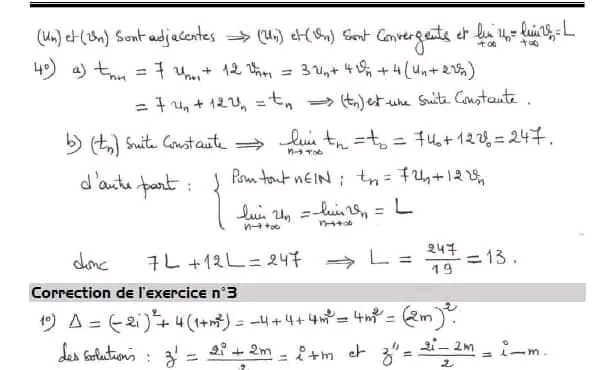 (Un) et (Vn) sont adjacentes ⟹ (Un) et (Vn) sont Convergents et lim Un = lim Vn = L
+∞ +∞
4°) a) tn+1 = 7 Un+1 + 12 Vn+1 = 3Un + 4Vn + 4(Un + 2Vn)
= 7Un + 12Vn = tn ⟹ (tn) est une suite Constante.
b) (tn) suite Constante ⟹ lim tn = t0 = 7U0 + 12V0 = 247.
n→+∞
d'autre part : { Pour tout n∈IN ; tn = 7Un + 12Vn
lim Un = lim Vn = L
n→+∞ n→+∞
donc 7L + 12L = 247 ⟹ L = 247/19 = 13.
Correction de l'exercice n°3
1°) Δ = (-2i)² + 4(1+m²) = -4+4+4m² = 4m² = (2m)².
des solutions : z' = 2i + 2m/2 = i+m et z'' = 2i - 2m/2 = i-m.